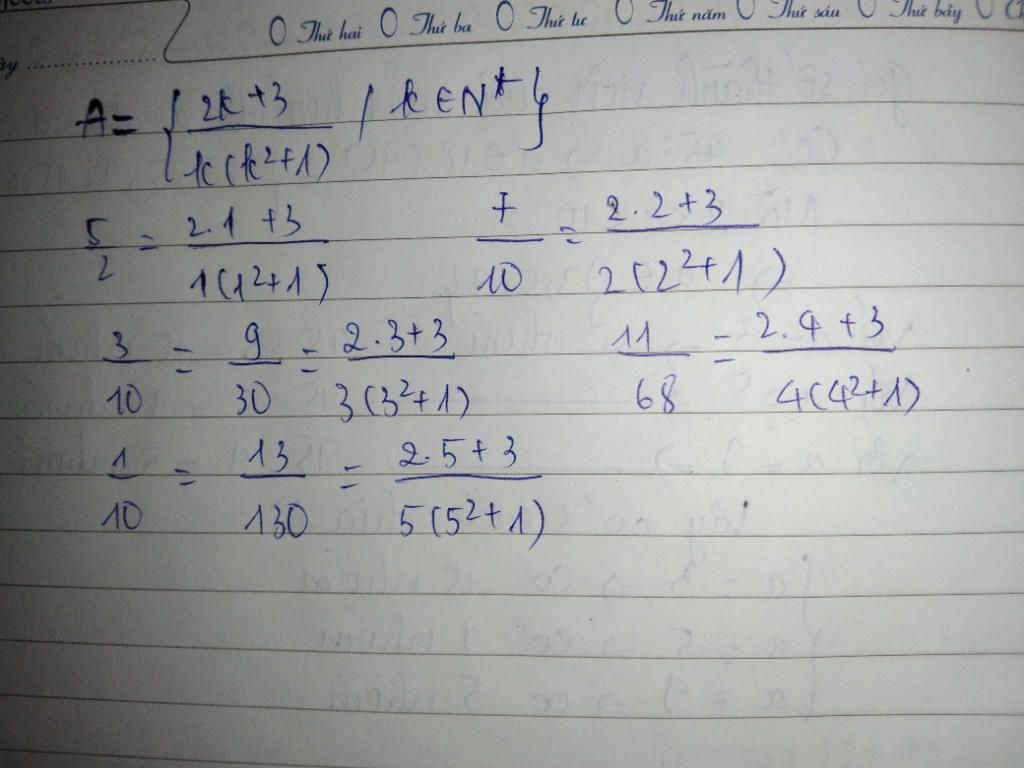 Thứ hai Thứ ba Thứ tư Thứ năm Thứ sáu Thứ bảy
A = { 2k+3 / k(k²+1) / k ∈ N* }
5/2 = 2.1 +3 / 1(1²+1) 7/10 = 2.2+3 / 2(2²+1)
3/10 = 9/30 = 2.3+3 / 3(3²+1) 11/68 = 2.4 +3 / 4(4²+1)
1/10 = 13/130 = 2.5+3 / 5(5²+1)